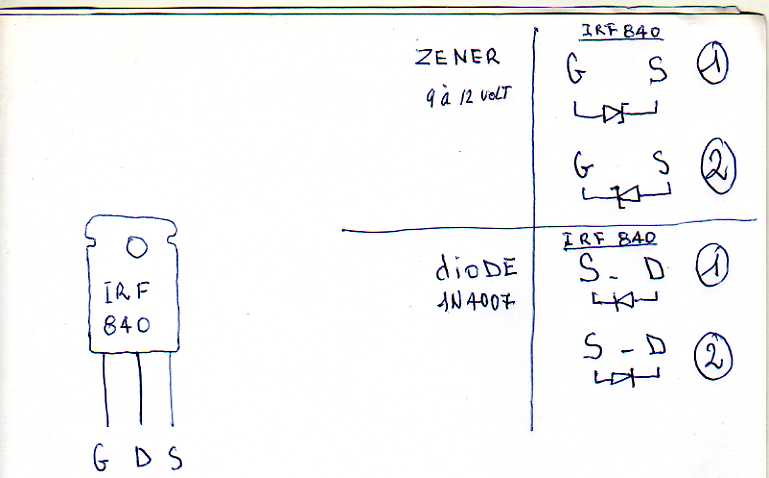 ZENER
9 à 12 VOLT
IRF 840
G S 1
G S 2
diODE
1N4007
IRF 840
S - D 1
S - D 2
IRF
840
G D S